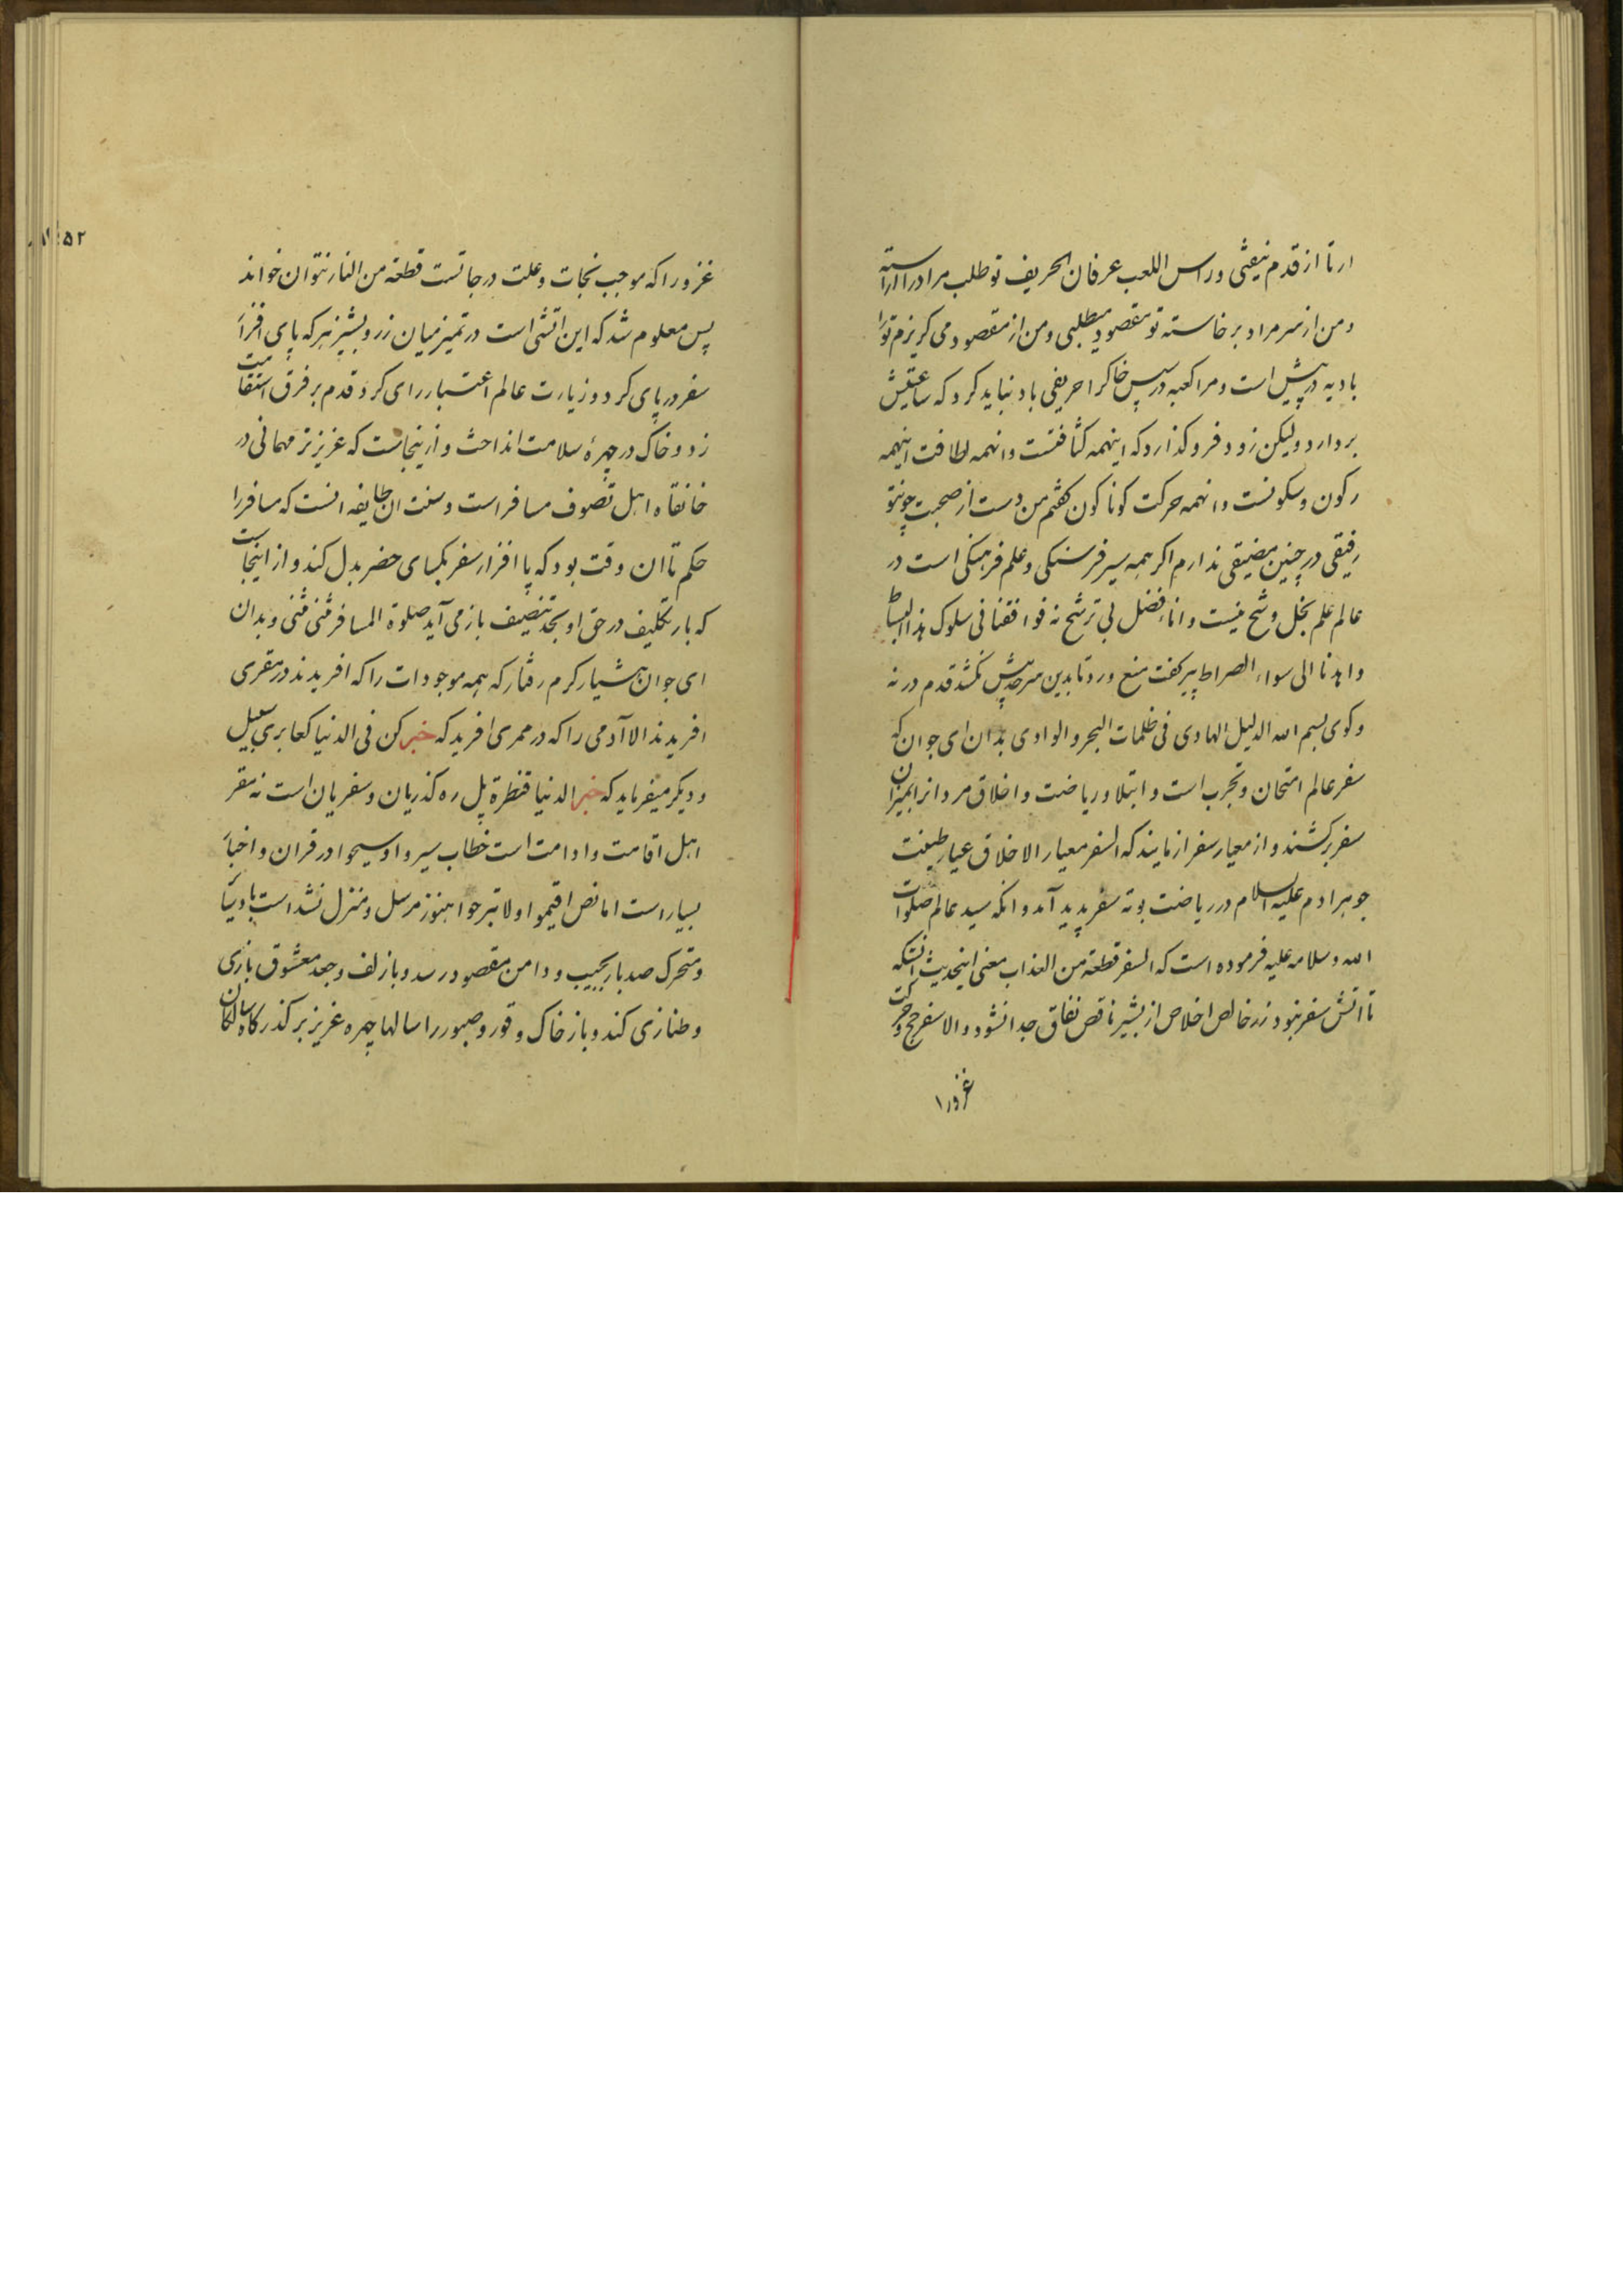 ار تا از قدم نیفتی و راس اللعب عرفان الحریف تو طلب مراد را اراسته
و من از سر مراد بر خاسته تو مقصود میطلبی و من از مقصود می کریزم ترا
بادیه در پیش است و مرا کعبه در پس خاکرا حریفی باد نباید کرد که ساعتیش
بردارد و لیکن زود فرو کذارد که اینهمه کثافتست و انهمه لطافت اینهمه
رکون و سکونست و انهمه حرکت کوناکون کفتم من دست از صحبت چونتو
رفیقی در چنین مضیقی ندارم اکر همه سیر فرسنکی و علم فرهنکی است در
عالم علم بخل و شح نیست و اناء فضل بی ترشح نه فوافقنا فی سلوک هذا البساط
و اهدنا الی سواء الصراط پیر کفت منع ورد تا بدین سرحد پیش نکشد قدم در نه
و کوی بسم الله الدلیل الهادی فی ظلمات البحر و الوادی بدان ای جوان که
سفر عالم امتحان و تجرب است و ابتلا و ریاضت و اخلاق مردانرا بمیزان
سفر برکشند و از معیار سفر ازمایند که السفر معیار الاخلاق عیار طینت
جوهر ادم علیه السلام در ریاضت بوته سفر پدید آمد و انکه سید عالم صلوات
الله و سلامه علیه فرموده است که السفر قطعة من العذاب معنی اینحدیث انستکه
تا اتش سفر نبود زر خالص اخلاص از پشیز ناقص نفاق جدا نشود و الا سفر حج و حرکت
غزو را
۵۲
غزو را که موجب نجات و علت درجاتست قطعة من النار نتوان خواند
پس معلوم شد که این اتشی است در تمیز میان زر و پشیز هر که پای افزار
سفر در پای کرد و زیارت عالم اعتبار رای کرد قدم بر فرق استقامت
زد و خاک در چهرهٔ سلامت انداخت و ازینجاست که عزیزتر مهمانی در
خانقاه اهل تصوف مسافر است و سنت ان طایفه انست که مسافر را
حکم تا ان وقت بود که پا افزار سفر بکسای حضر بدل کند و از اینجاست
که بار تکلیف در حق او بحد تنصیف باز می آید صلوة المسافر مثنی مثنی و بدان
ای جوان هشیار کرم رفتار که همه موجودات را که افریدند در مقری
افریدند الا آدمی را که در ممری افرید که خبر کن فی الدنیا کعابری سبیل
و دیکر میفرماید که خبر الدنیا قنطرة پل ره کذریان و سفریان است نه مقر
اهل اقامت و ادامت است خطاب سیروا و سیحوا در قران و اخبار
بسیار است اما نص اقیموا و لا تبرحوا هنوز مرسل و منزل نشد است باد سیار
و متحرک صد بار بجیب و دامن مقصود رسد و باز لف و جعد معشوق بازی
و طنازی کند و باز خاک وقور و صبور را سالها چهره عزیز بر کذرکاه سالکان